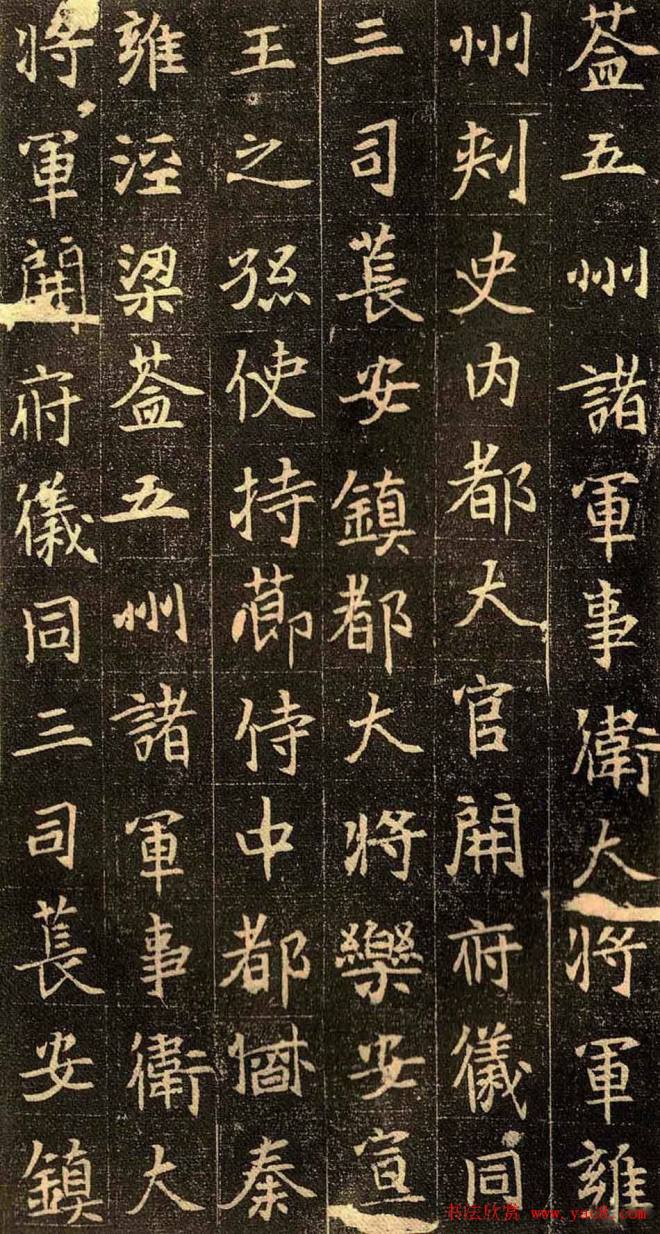 葢五州諸軍事衛大將軍雍
州刺史內都大官開府儀同
三司萇安鎮都大將樂安宣
王之孫使持莭侍中都㫯秦
雍涇梁葢五州諸軍事衛大
將軍開府儀同三司萇安鎮
书法欣赏 www.yac8.com